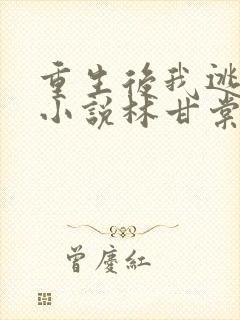 重生後我逃
小說林甘棠
曾慶紅